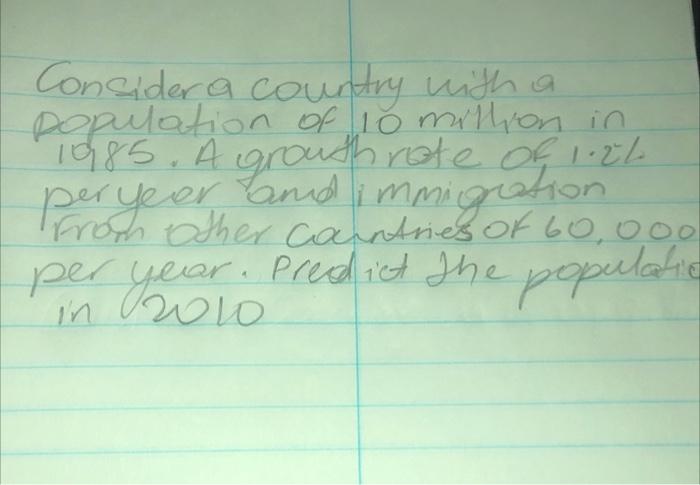 Consider a country with a
population of 10 million in
1985. A growth rate of 1.2%
per year and immigration
From other countries of 60,000
per year. Predict the populatio
in 2010